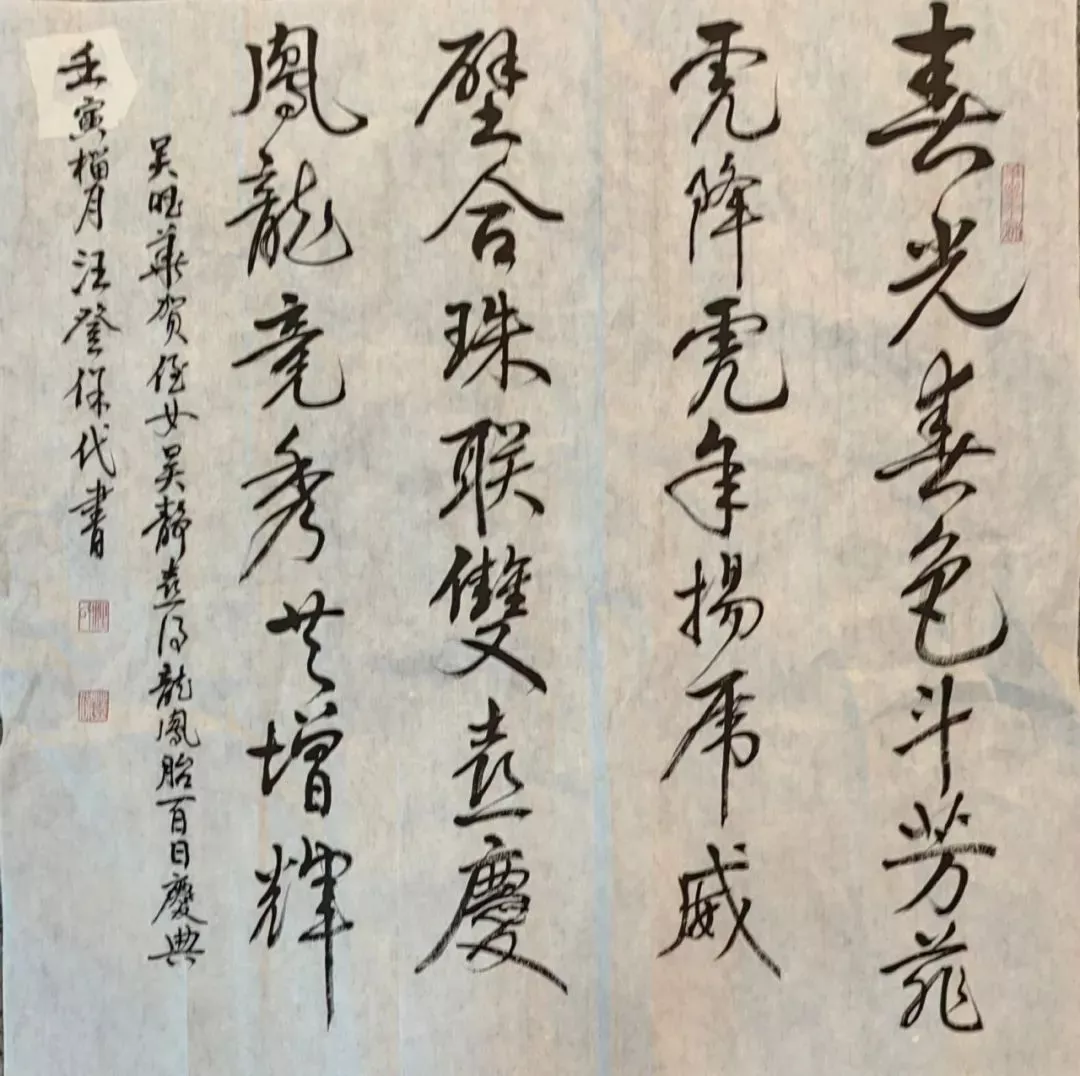 春光春色斗芳菲
虎降虎年揚虎威
璧合珠联雙喜慶
鳳龍竞秀共增輝
吴旺華贺侄女吴静喜得龍鳳胎百日慶典
壬寅榴月汪登保代書